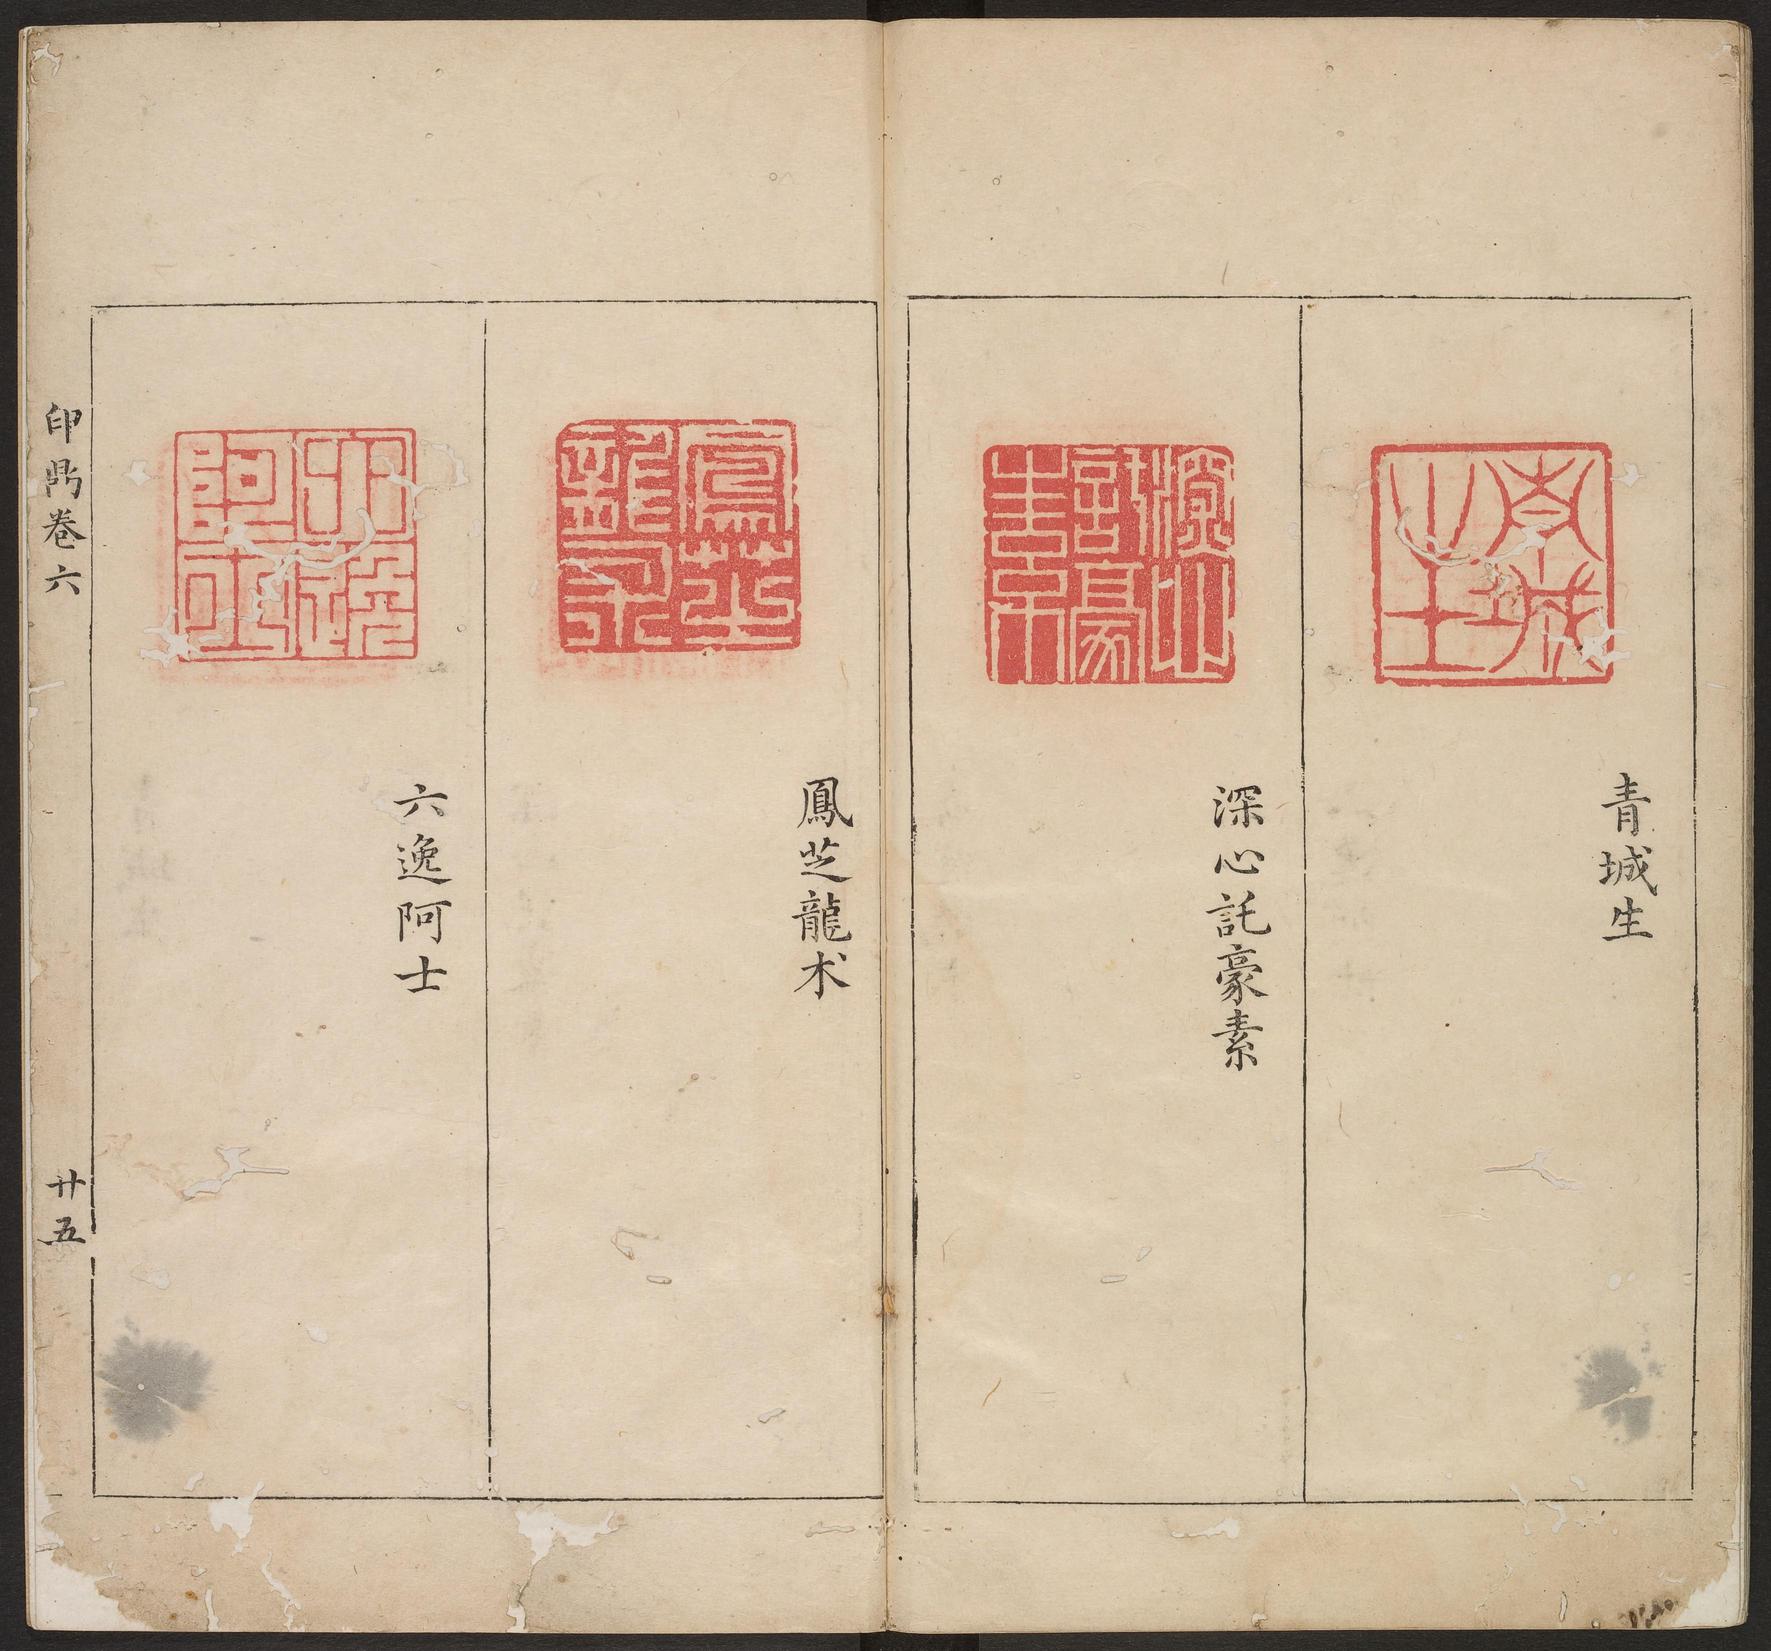 青城生
深心託豪素
鳳芝龍朮
六逸阿士
印鼎卷六
廿五